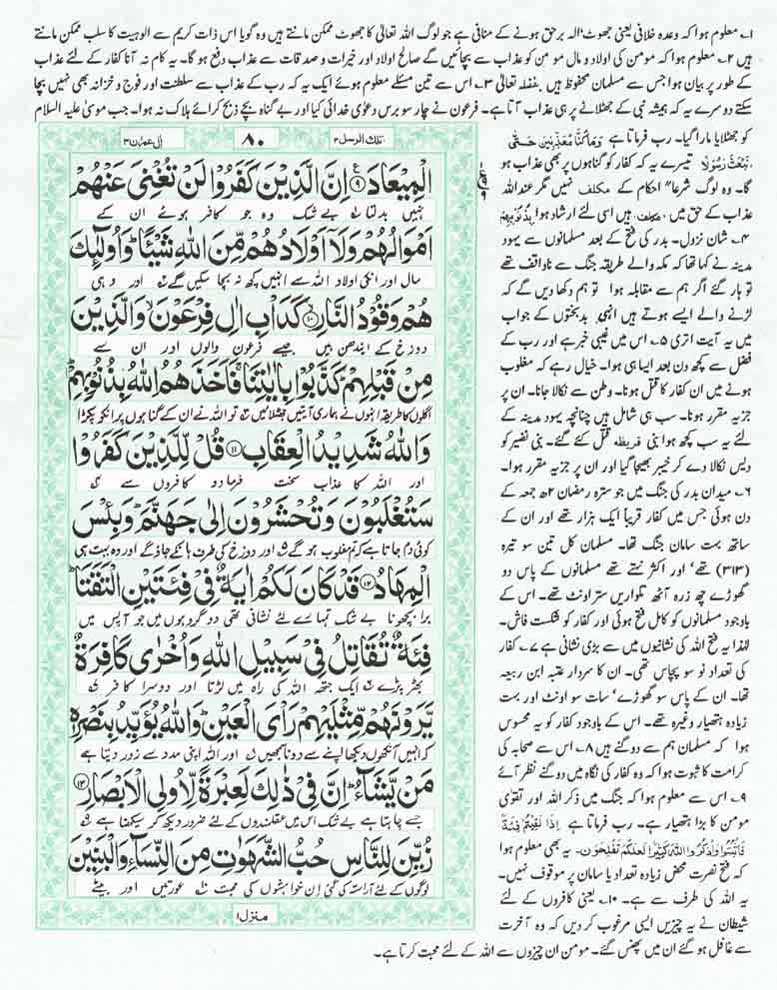 ۱۔ معلوم ہوا کہ وعدہ خلافی یعنی جھوٹ الہ برحق ہونے کے منافی ہے جو لوگ اللہ تعالیٰ کا جھوٹ ممکن مانتے ہیں وہ گویا اس ذات کریم سے الوہیت کا سلب ممکن مانتے
ہیں ۲۔ معلوم ہوا کہ مومن کی اولاد و مال مومن کو عذاب سے بچائیں گے صالح اولاد اور خیرات و صدقات سے عذاب دفع ہو گا۔ یہ کام نہ آنا کفار کے لئے عذاب
کے طور پر بیان ہوا جس سے مسلمان محفوظ ہیں بفضلہ تعالیٰ ۳۔ اس سے تین مسئلے معلوم ہوئے ایک یہ کہ رب کے عذاب سے سلطنت اور فوج و خزانہ بھی نہیں بچا
سکتے دوسرے یہ کہ ہمیشہ نبی کے جھٹلانے پر ہی عذاب آتا ہے۔ فرعون نے چار سو برس دعوٰی خدائی کیا اور بے گناہ بچے ذبح کرائے ہلاک نہ ہوا۔ جب موسیٰ علیہ السلام
کو جھٹلایا مارا گیا۔ رب فرماتا ہے وَمَا كُنَّا مُعَذِّبِيْنَ حَتّٰى
نَبْعَثَ رَسُوْلًا تیسرے یہ کہ کفار کو گناہوں پر بھی عذاب ہو
گا۔ وہ لوگ شرعاً احکام کے مکلف نہیں مگر عنداللہ
عذاب کے حق میں مکلف ہیں اسی لئے ارشاد ہوا بِذُنُوْبِهِمْ
۴۔ شان نزول۔ بدر کی فتح کے بعد مسلمانوں سے یہود
مدینہ نے کہا تھا کہ مکہ والے طریقہ جنگ سے ناواقف تھے
تو ہار گئے اگر ہم سے مقابلہ ہوا تو ہم دکھا دیں گے کہ
لڑنے والے ایسے ہوتے ہیں انہی بدبختوں کے جواب
میں یہ آیت اتری ۵۔ اس میں غیبی خبر ہے اور رب کے
فضل سے کچھ دن بعد ایسا ہی ہوا۔ خیال رہے کہ مغلوب
ہونے میں ان کفار کا قتل ہونا۔ وطن سے نکالا جانا۔ ان پر
جزیہ مقرر ہونا۔ سب ہی شامل ہیں چنانچہ یہود مدینہ کے
لئے یہ سب کچھ ہوا بنی قریظہ قتل کئے گئے۔ بنی نضیر کو
دیس نکالا دے کر خیبر بھیجا گیا اور ان پر جزیہ مقرر ہوا۔
۶۔ میدان بدر کی جنگ میں جو سترہ رمضان ۲ھ جمعہ کے
دن ہوئی جس میں کفار قریباً ایک ہزار تھے اور ان کے
ساتھ بہت سامان جنگ تھا۔ مسلمان کل تین سو تیرہ
(۳۱۳) تھے اور اکثر نہتے تھے مسلمانوں کے پاس دو
گھوڑے چھ زرہ آٹھ تلواریں ستر اونٹ تھے۔ اس کے
باوجود مسلمانوں کو کامل فتح ہوئی اور کفار کو شکست فاش۔
لہٰذا یہ فتح اللہ کی نشانیوں میں سے بڑی نشانی ہے ۷۔ کفار
کی تعداد نو سو پچاس تھی۔ ان کا سردار عتبہ ابن ربیعہ
تھا۔ ان کے پاس سو گھوڑے سات سو اونٹ اور بہت
زیادہ ہتھیار وغیرہ تھے۔ اس کے باوجود کفار کو یہ محسوس
ہوا کہ مسلمان ہم سے دوگنے ہیں ۸۔ اس سے صحابہ کی
کرامت کا ثبوت ہوا کہ وہ کفار کی نگاہ میں دوگنے نظر آئے
۹۔ اس سے معلوم ہوا کہ جنگ میں ذکر اللہ اور تقوٰی
مومن کا بڑا ہتھیار ہے۔ رب فرماتا ہے اِذَا لَقِيْتُمْ فِئَةً
فَاثْبُتُوْا وَاذْكُرُوا اللّٰهَ كَثِيْرًا لَّعَلَّكُمْ تُفْلِحُوْنَ۔ یہ بھی معلوم ہوا
کہ فتح نصرت محض زیادہ تعداد یا سامان پر موقوف نہیں۔
یہ اللہ کی طرف سے ہے۔ ۱۰۔ یعنی کافروں کے لئے
شیطان نے یہ چیزیں ایسی مرغوب کر دیں کہ وہ آخرت
سے غافل ہو گئے ان میں پھنس گئے۔ مومن ان چیزوں سے اللہ کے لئے محبت کرتا ہے۔
تلك الرسل۳ ۸۰ اٰل عمران۳
الْمِيْعَادَ۝۹ اِنَّ الَّذِيْنَ كَفَرُوْا لَنْ تُغْنِيَ عَنْهُمْ
نہیں بدلتا بے شک وہ جو کافر ہوئے ان کے
اَمْوَالُهُمْ وَلَاۤ اَوْلَادُهُمْ مِّنَ اللّٰهِ شَيْئًا وَاُولٰٓئِكَ
مال اور انکی اولاد اللہ سے انہیں کچھ نہ بچا سکیں گے اور وہی
هُمْ وَقُوْدُ النَّارِ۝۱۰ كَدَاْبِ اٰلِ فِرْعَوْنَ وَالَّذِيْنَ
دوزخ کے ایندھن ہیں جیسے فرعون والوں اور ان سے
مِنْ قَبْلِهِمْ كَذَّبُوْا بِاٰيٰتِنَا فَاَخَذَهُمُ اللّٰهُ بِذُنُوْبِهِمْ
اگلوں کا طریقہ انہوں نے ہماری آیتیں جھٹلائیں تو اللہ نے ان کے گناہوں پر انکو پکڑا
وَاللّٰهُ شَدِيْدُ الْعِقَابِ۝۱۱ قُلْ لِّلَّذِيْنَ كَفَرُوْا
اور اللہ کا عذاب سخت فرما دو کافروں سے
سَتُغْلَبُوْنَ وَتُحْشَرُوْنَ اِلٰى جَهَنَّمَ وَبِئْسَ
کوئی دم جاتا ہے کہ تم مغلوب ہو گے اور دوزخ کی طرف ہانکے جاؤ گے اور وہ بہت ہی
الْمِهَادُ۝۱۲ قَدْ كَانَ لَكُمْ اٰيَةٌ فِيْ فِئَتَيْنِ الْتَقَتَا
برا بچھونا بے شک تمہارے لئے نشانی تھی دو گروہوں میں جو آپس میں
فِئَةٌ تُقَاتِلُ فِيْ سَبِيْلِ اللّٰهِ وَاُخْرٰى كَافِرَةٌ
بھڑ پڑے ایک جتھہ اللہ کی راہ میں لڑتا اور دوسرا کافر
يَّرَوْنَهُمْ مِّثْلَيْهِمْ رَاْيَ الْعَيْنِ وَاللّٰهُ يُؤَيِّدُ بِنَصْرِهٖ
کہ انہیں آنکھوں دیکھا اپنے سے دونا سمجھیں اور اللہ اپنی مدد سے زور دیتا ہے
مَنْ يَّشَآءُ اِنَّ فِيْ ذٰلِكَ لَعِبْرَةً لِّاُولِي الْاَبْصَارِ۝۱۳
جسے چاہتا ہے بے شک اس میں عقلمندوں کے لئے ضرور دیکھ کر سیکھنا ہے
زُيِّنَ لِلنَّاسِ حُبُّ الشَّهَوٰتِ مِنَ النِّسَآءِ وَالْبَنِيْنَ
لوگوں کے لئے آراستہ کی گئی ان خواہشوں کی محبت عورتیں اور بیٹے
منزل۱